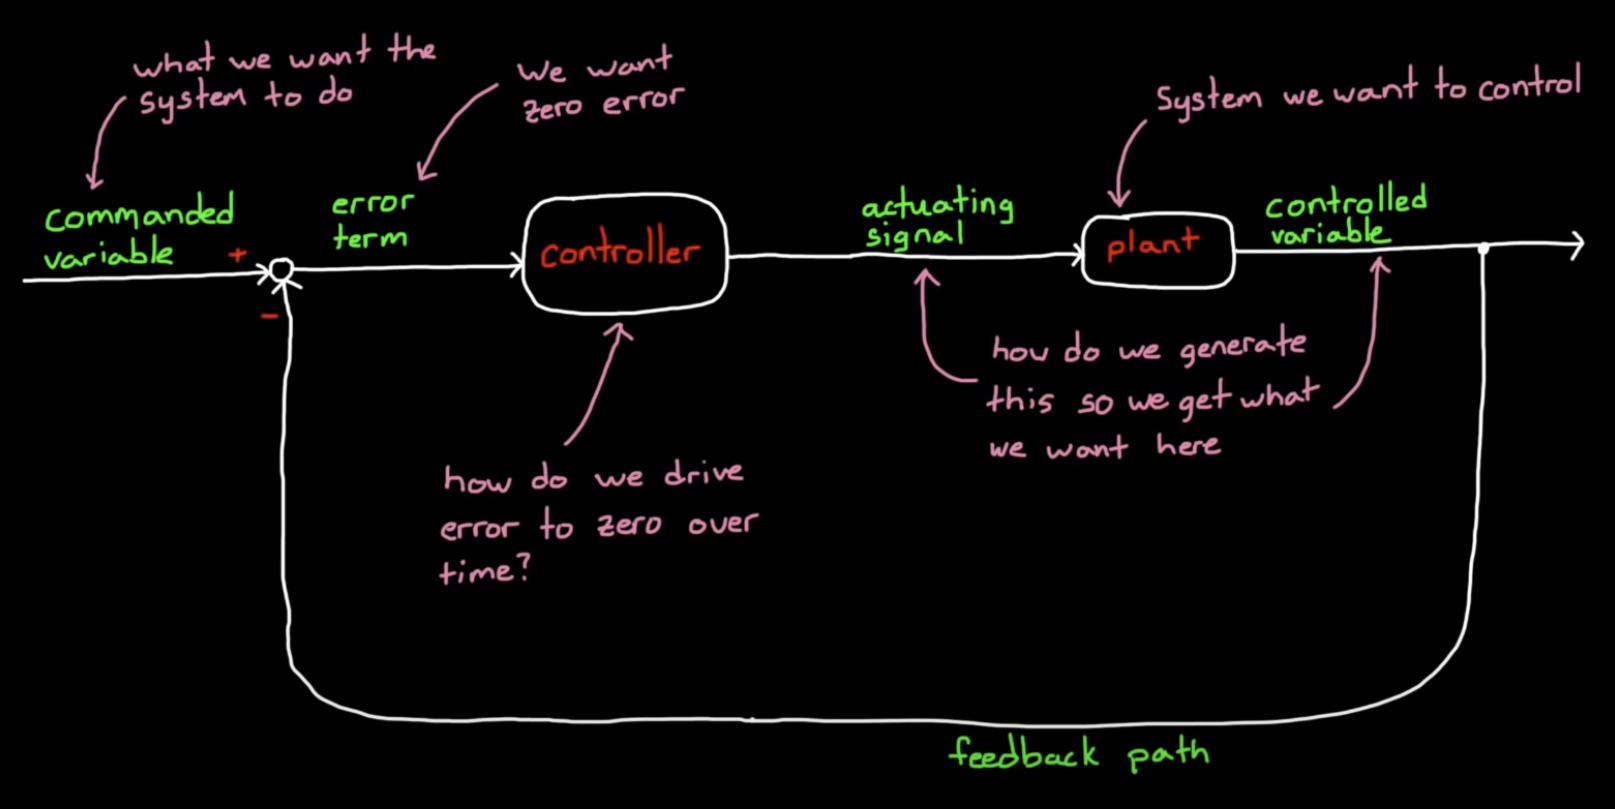 what we want the
system to do
we want
zero error
System we want to control
commanded
variable
+
-
error
term
controller
actuating
signal
plant
controlled
variable
how do we generate
this so we get what
we want here
how do we drive
error to zero over
time?
feedback path